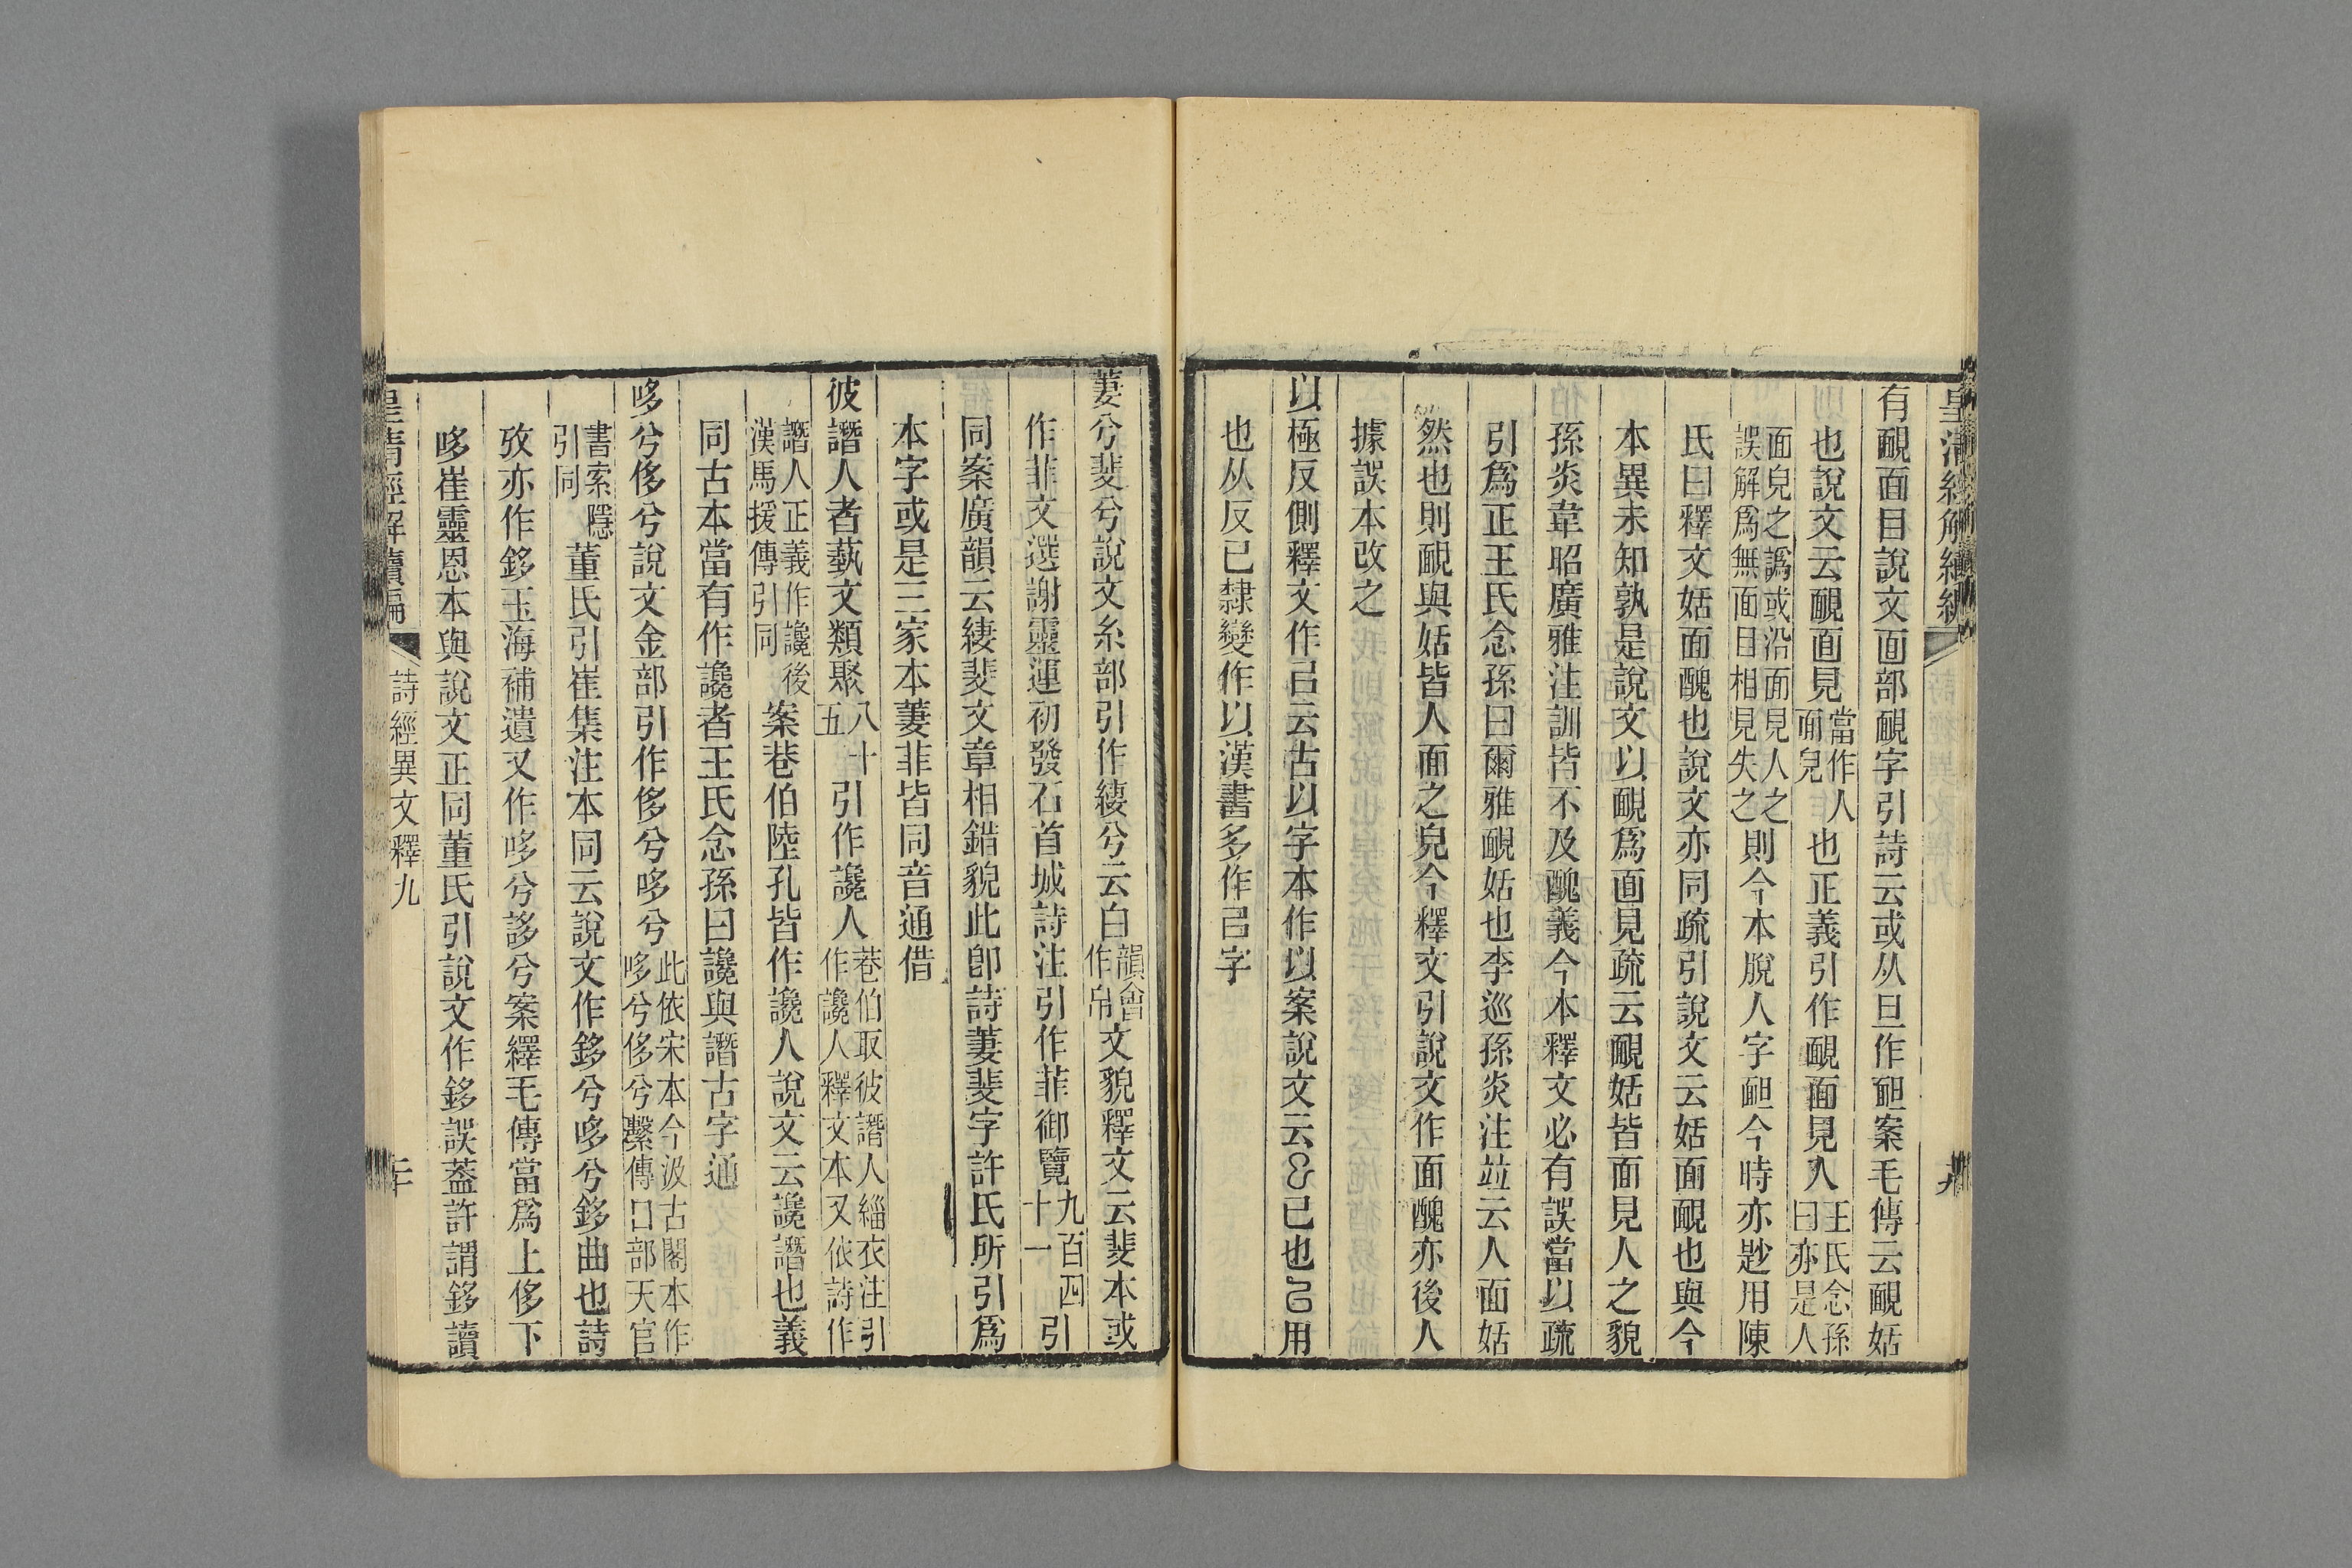 皇清經解續編
有靦面目說文面部靦字引詩云或从旦作䩆案毛傳云靦姡
也說文云靦面見當作人面皃也正義引作靦面見人王氏念孫曰亦是人
面皃之譌或沿面見人之誤解爲無面目相見失之則今本脫人字䩆今時亦尟用陳
氏曰釋文姡面醜也說文亦同疏引說文云姡面靦也與今
本異未知孰是說文以靦爲面見疏云靦姡皆面見人之貌
孫炎韋昭廣雅注訓皆不及醜義今本釋文必有誤當以疏
引爲正王氏念孫曰爾雅靦姡也李巡孫炎注竝云人面姡
然也則靦與姡皆人面之皃今釋文引說文作面醜亦後人
據誤本改之
以極反側釋文作㠯云古以字本作以案說文云
已也
用
也从反已隸變作以漢書多作㠯字
萋兮斐兮說文糸部引作縷兮云白韻會作帛文貌釋文云斐本或
作菲文選謝靈運初發石首城詩注引作菲御覽九百四十一引
同案廣韻云縷斐文章相錯貌此卽詩萋斐字許氏所引爲
本字或是三家本萋菲皆同音通借
彼譖人者藝文類聚八十五引作讒人巷伯取彼譖人緇衣注引作讒人釋文本又依詩作
譖人正義作讒後漢馬援傳引同案巷伯陸孔皆作讒人說文云讒譖也義
同古本當有作讒者王氏念孫曰讒與譖古字通
哆兮侈兮說文金部引作侈兮哆兮此依宋本今汲古閣本作哆兮侈兮繫傳口部天官
書索隱引同董氏引崔集注本同云說文作鉹兮哆兮鉹曲也詩
攷亦作鉹玉海補遺又作哆兮誃兮案繹毛傳當爲上侈下
哆崔靈恩本與說文正同董氏引說文作鉹誤葢許謂鉹讀
皇清經解續編
詩經異文釋九